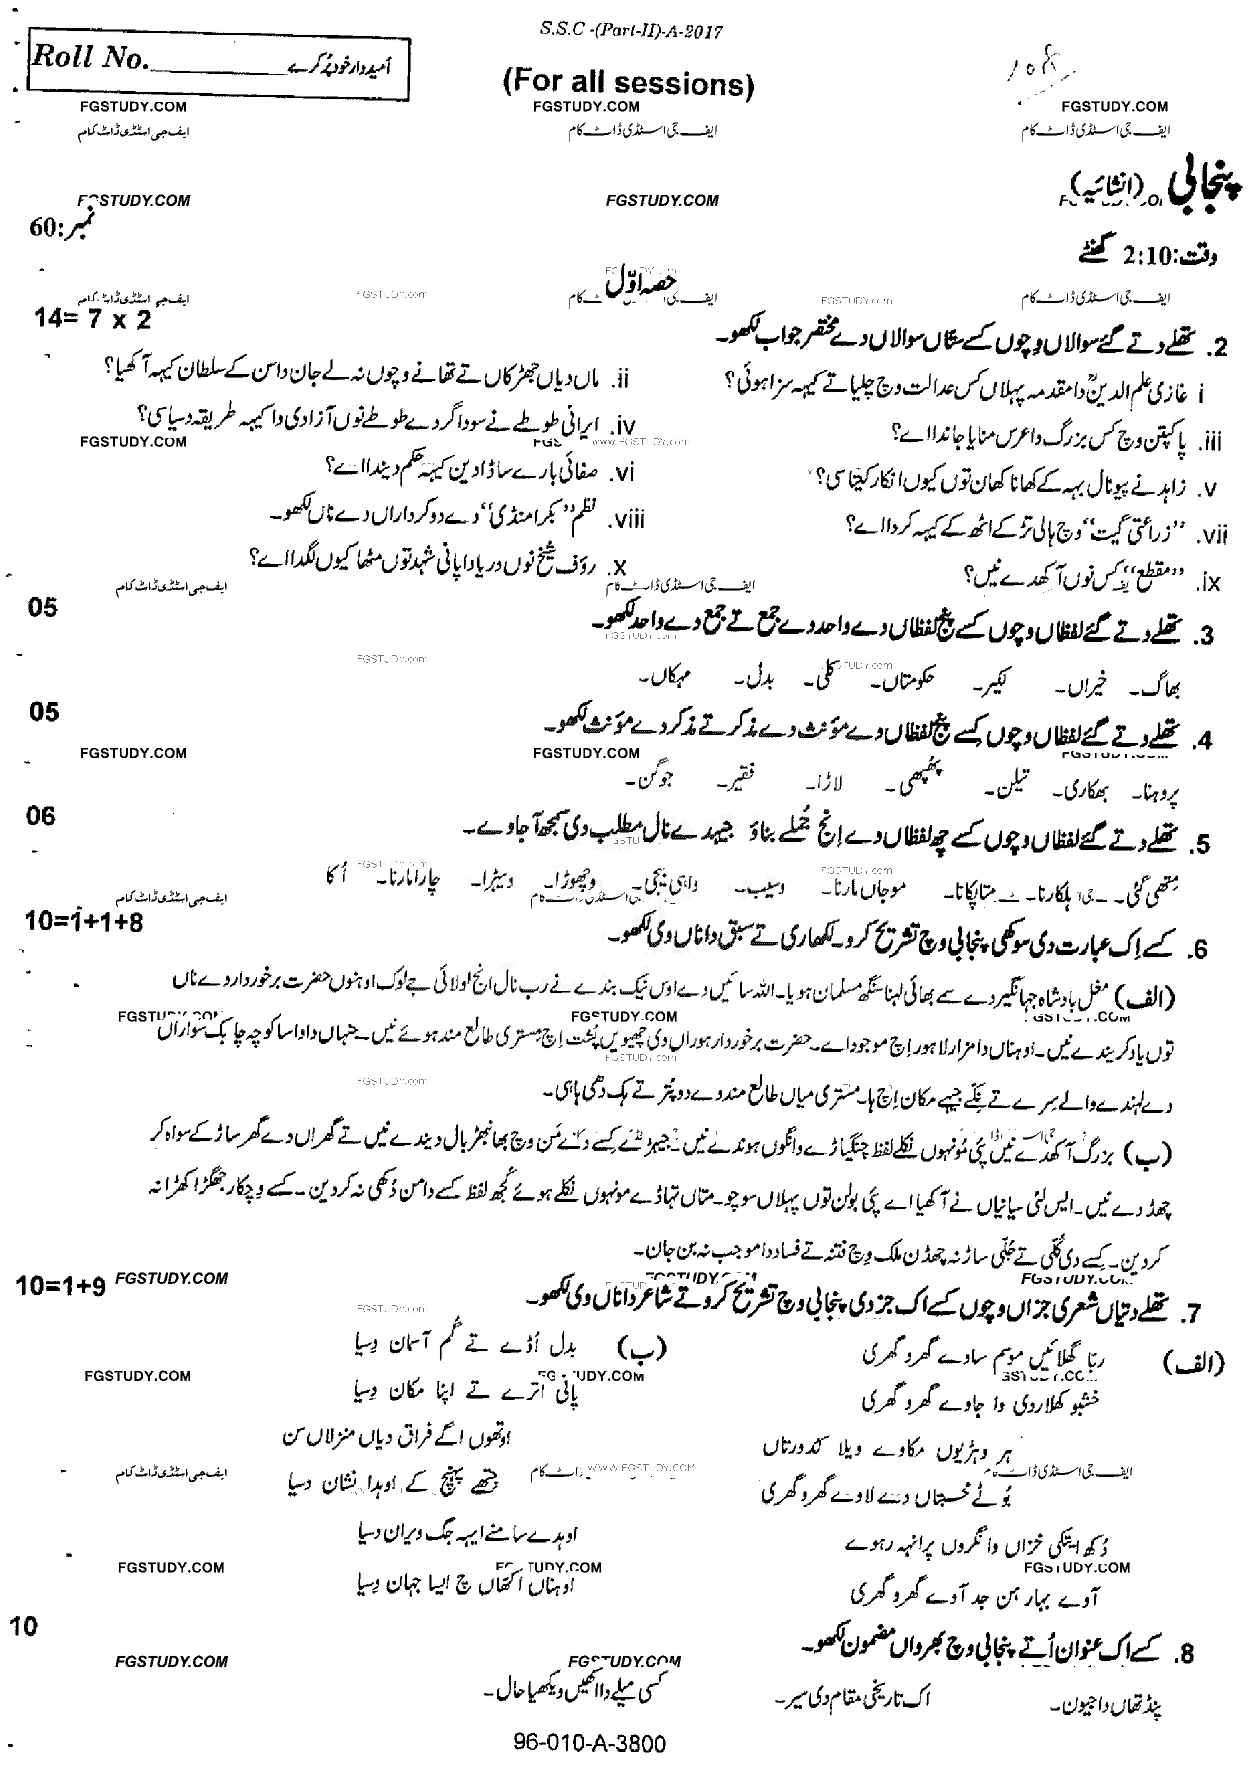 S.S.C -(Part-II)-A-2017
Roll No.__________ امیدوار خود پُر کرے
(For all sessions)
108
FGSTUDY.COM FGSTUDY.COM FGSTUDY.COM
ایف جی اسٹڈی ڈاٹ کام ایف جی اسٹڈی ڈاٹ کام ایف جی اسٹڈی ڈاٹ کام
پنجابی (انشائیہ)
FGSTUDY.COM FGSTUDY.COM
نمبر:60
وقت:2:10 گھنٹے
حصہ اوّل
2. تھلے دتے گئے سوالاں وچوں کسے ستّاں سوالاں دے مختصر جواب لکھو۔ 14= 7 x 2
i غازی علم الدینؒ دا مقدمہ پہلاں کس عدالت وچ چلیا تے کیہہ سزا ہوئی؟ ii. ماں دیاں جھڑکاں تے تھانے وچوں نہ لے جان دا سن کے سلطان کیہہ آکھیا؟
iii. پاکپتن وچ کس بزرگ دا عرس منایا جاندا اے؟ iv. ایرانی طوطے نے سوداگر دے طوطے نوں آزادی دا کیہہ طریقہ دسیا سی؟
v. زاہد نے پیو نال بہہ کے کھانا کھان توں کیوں انکار کیتا سی؟ vi. صفائی بارے ساڈا دین کیہہ حکم دیندا اے؟
vii. ’’زراعتی گیت‘‘ وچ ہالی تڑکے اٹھ کے کیہہ کردا اے؟ viii. نظم ’’بکرا منڈی‘‘ دے دو کرداراں دے ناں لکھو۔
ix. ’’مقطع‘‘ کس نوں آکھدے نیں؟ x. رؤف شیخ نوں دریا دا پانی شہد توں مٹھا کیوں لگدا اے؟
3. تھلے دتے گئے لفظاں وچوں کسے پنج لفظاں دے واحد دے جمع تے جمع دے واحد لکھو۔ 05
بھاگ۔ خیراں۔ لکیر۔ حکومتاں۔ گلی۔ بدل۔ مہکاں۔
4. تھلے دتے گئے لفظاں وچوں کسے پنج لفظاں دے مؤنث دے مذکر تے مذکر دے مؤنث لکھو۔ 05
پروہنا۔ بھکاری۔ تیلن۔ پھپھی۔ لاڑا۔ فقیر۔ جوگن۔
5. تھلے دتے گئے لفظاں وچوں کسے چھ لفظاں دے اِنج جُملے بناؤ جیہدے نال مطلب دی سمجھ آ جاوے۔ 06
متھی گئی۔ ہلکارنا۔ متا پکانا۔ موجاں مارنا۔ وسیب۔ واہی بیجی۔ وچھوڑا۔ ویڑا۔ چارا مارنا۔ اُکا
6. کسے اِک عبارت دی سوکھی پنجابی وچ تشریح کرو۔ لکھاری تے سبق دا ناں وی لکھو۔ 10=1+1+8
(الف) مغل بادشاہ جہانگیر دے سمے بھائی لہنا سنگھ مسلمان ہویا۔ اللہ سائیں دے اوس نیک بندے نے رب نال انج لو لائی جے لوک اوہنوں حضرت برخوردار دے ناں
توں یاد کریندے نیں۔ اوہناں دا مزار لاہور اچ موجود اے۔ حضرت برخوردار ہوراں دی چھیویں پشت اچ مستری طالع مند ہوئے نیں۔ جنہاں دا واسا کوچہ چابک سواراں
دے لہندے والے سرے تے نکے جیہے مکان اِچ ہا۔ مستری میاں طالع مند دے دو پتر تے ہک دھی ہاہی۔
(ب) بزرگ آکھدے نیں پئی مُونہوں نکلے لفظ چنگیاڑے وانگوں ہوندے نیں۔ جیہڑے کسے دے مَن وچ بھانبھڑ بال دیندے نیں تے گھراں دے گھر ساڑ کے سواہ کر
چھڈ دے نیں۔ ایس لئی سیانیاں نے آکھیا اے پئی بولن توں پہلاں سوچو۔ متاں تہاڈے مونہوں نکلے ہوئے کجھ لفظ کسے دا من دُکھی نہ کر دین۔ کسے وچکار جھگڑا کھڑا نہ
کر دین۔ کسے دی کُلی تے جُلی ساڑ نہ چھڈن ملک وچ فتنہ تے فساد دا موجب نہ بن جان۔
7. تھلے دتیاں شعری جزاں وچوں کسے اک جز دی پنجابی وچ تشریح کرو تے شاعر دا ناں وی لکھو۔ 10=1+9
(الف) ربا گھلائیں موسم ساوے گھرو گھری
خشبو کھلاردی وا جاوے گھرو گھری
ہر ویڑیوں مکاوے ویلا کدورتاں
بُوٹے محبتاں دے لاوے گھرو گھری
دُکھ ایتکی خزاں وانگروں پرانہہ رہوے
آوے بہار ہن جد آوے گھرو گھری
(ب) بدل اُڈے تے گُم آسمان دسیا
پانی اترے تے اپنا مکان دسیا
اوتھوں اگے فراق دیاں منزلاں سن
جتھے پہنچ کے اوہدا نشان دسیا
اوہدے سامنے ایہہ جگ ویران دسیا
اوہناں اکھاں چ ایسا جہان وسیا
8. کسے اک عنوان اُتے پنجابی وچ بھرواں مضمون لکھو۔ 10
پنڈ تھاں دا جیون۔ اک تاریخی مقام دی سیر۔ کسی میلے دا اکھیں ویکھیا حال۔
FGSTUDY.COM FGSTUDY.COM
96-010-A-3800